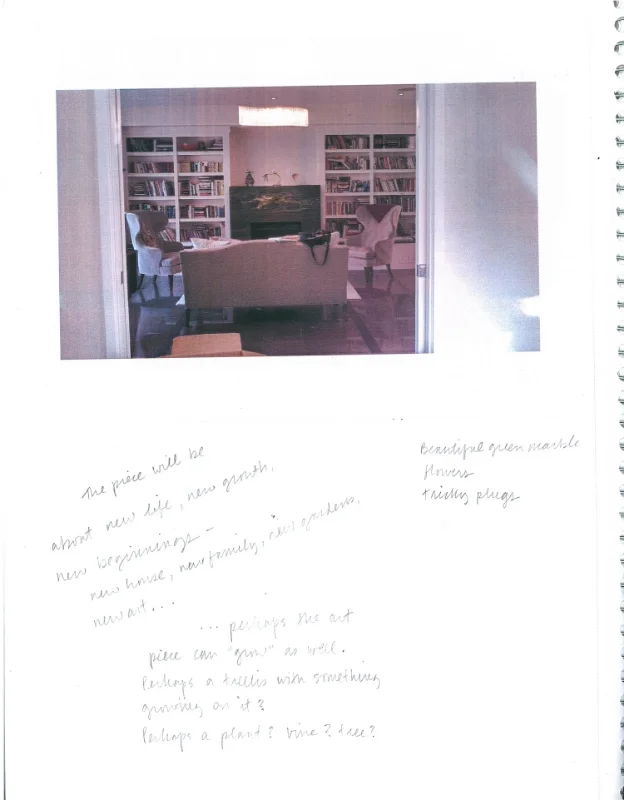 The piece will be
about new life, new growth,
new beginnings –
new house, new family, new gardens,
new art...
... perhaps the art
piece can "grow" as well.
Perhaps a trellis with something
growing on it?
Perhaps a plant? vine? tree?
Beautiful green marble
flowers
tricky plugs